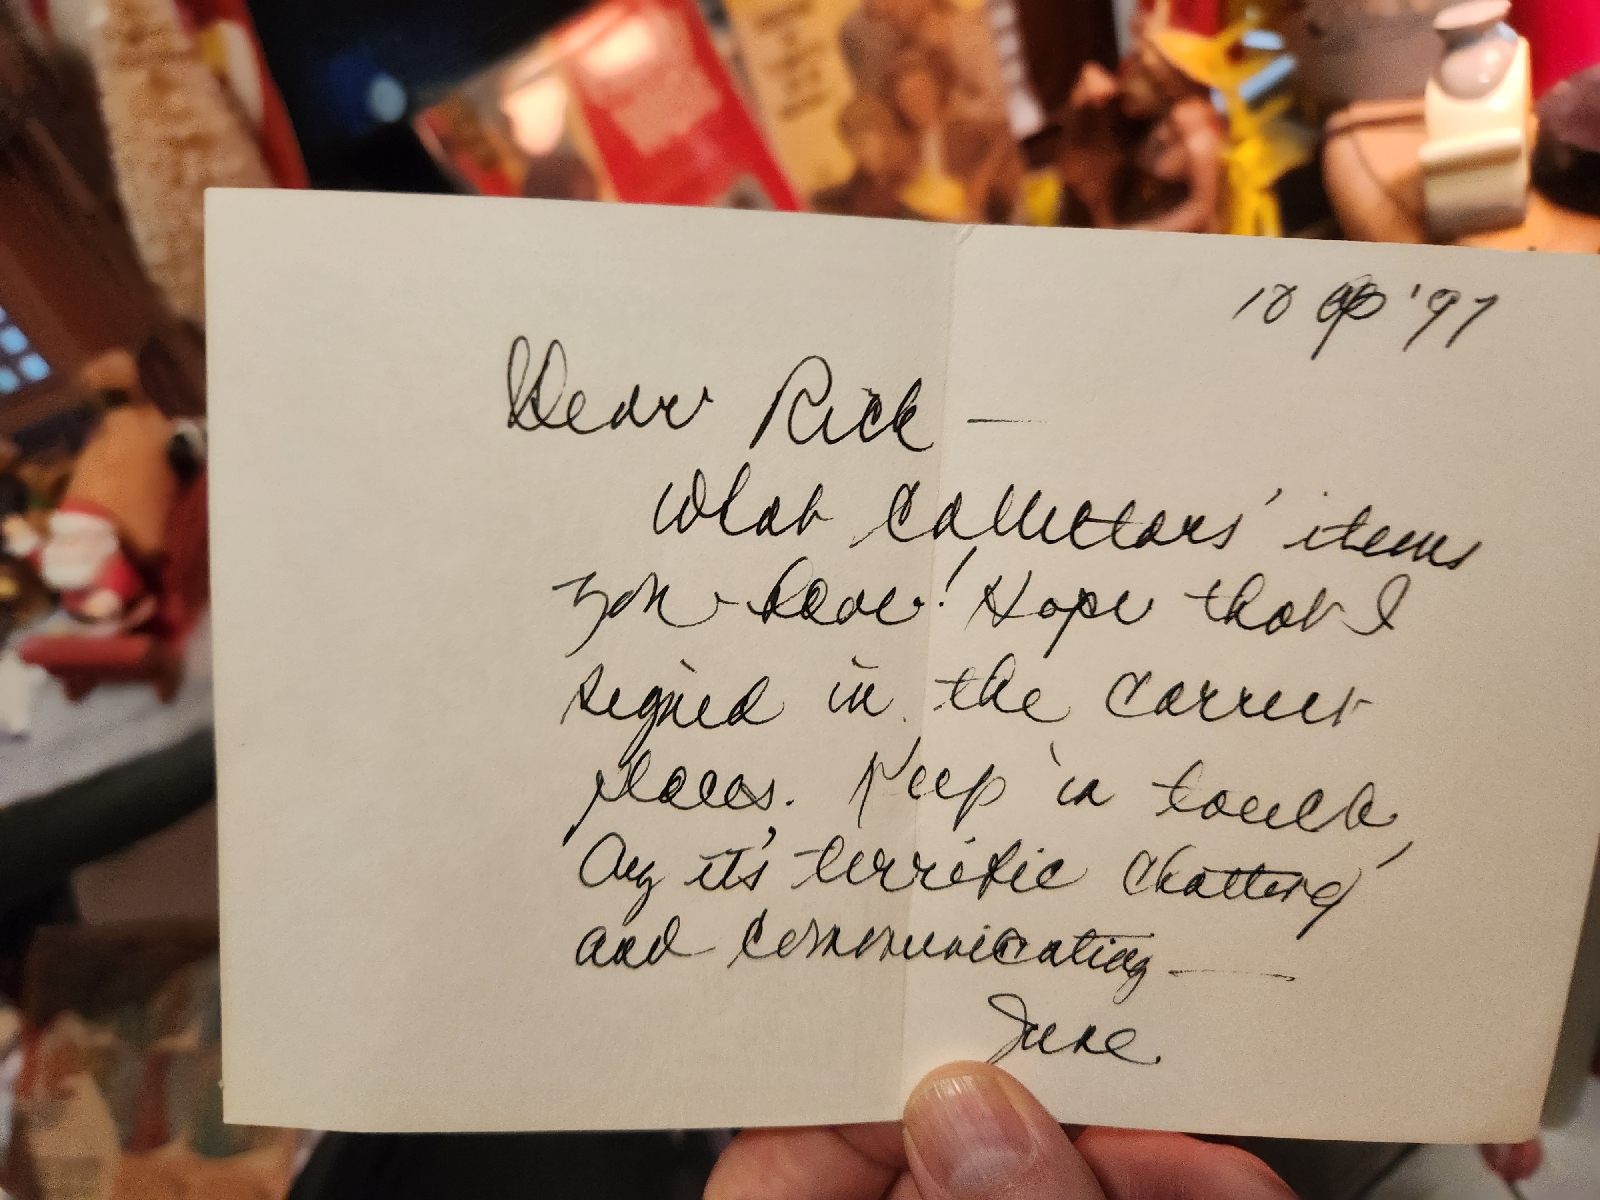 10 Ap '97
Dear Rick —
What collectors' items
you have! Hope that I
signed in the correct
places. Keep in touch,
it's terrific chatting
and communicating —
June